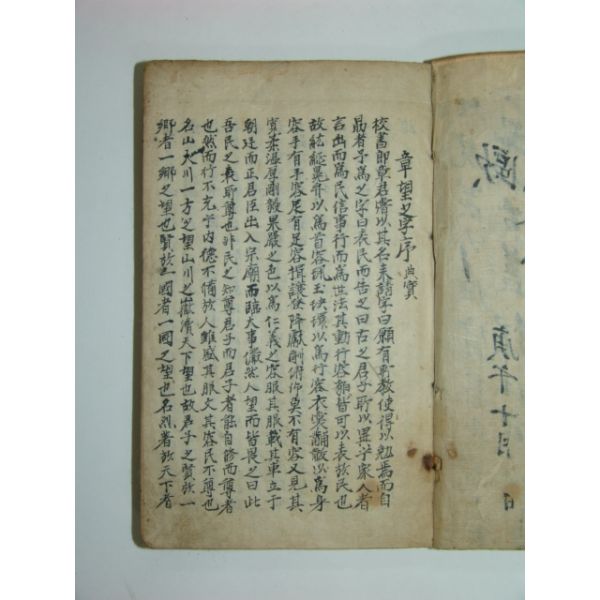 庚午十月 日
章望之字序 典實
校書郎章君嘗以其名來請字曰願有所教使得以勉焉而自
勗者予爲之字曰表民而告之曰古之君子所以異乎衆人者
言出而爲民信事行而爲世法其動行容貌皆可以表於民也
故紘綖冕弁以爲首容珮玉玦環以爲行容衣裳黼黻以爲身
容手有手容足有足容揖讓登降獻酬俯仰莫不有容又見其
寬柔溫厚剛毅果嚴之色以爲仁義之容服其服載其車立于
朝廷而正君臣出入宗廟而臨大事儼然人望而皆畏之曰此
吾民之所尊也非民之知尊君子而君子者能自修而尊者
也然而行不充乎內德不備於人雖盛其服文其容民不尊也
名山大川一方之望山川之嶽瀆天下望也故君子之賢於一
鄕者一鄕之望也賢於一國者一國之望也名烈著於天下者